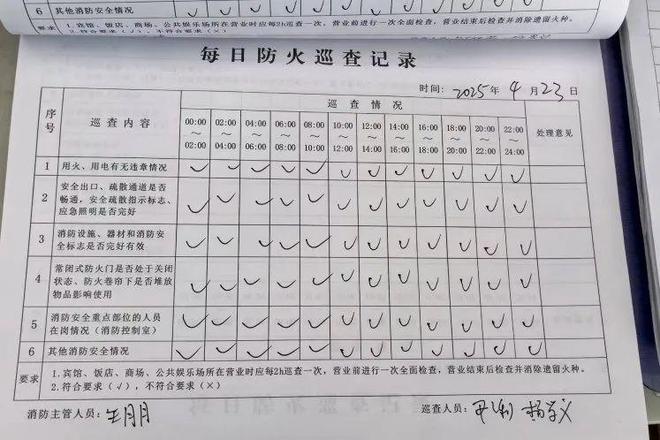 6 其他消防安全情况 ✓ ✓ ✓ ✓ ✓ ✓ ✓ ✓ ✓ ✓ ✓ ✓
要求 1.宾馆、饭店、商场、公共娱乐场所在营业时应每2h巡查一次，营业前进行一次全面检查，营业结束后检查并消除遗留火种。
2.符合要求（√），不符合要求（×）
每日防火巡查记录
时间：2025年4月23日
序号 巡查内容 巡查情况 处理意见
00:00～02:00 02:00～04:00 04:00～06:00 06:00～08:00 08:00～10:00 10:00～12:00 12:00～14:00 14:00～16:00 16:00～18:00 18:00～20:00 20:00～22:00 22:00～24:00
1 用火、用电有无违章情况 ✓ ✓ ✓ ✓ ✓ ✓ ✓ ✓ ✓ ✓ ✓ ✓
2 安全出口、疏散通道是否
畅通，安全疏散指示标志、
应急照明是否完好 ✓ ✓ ✓ ✓ ✓ ✓ ✓ ✓ ✓ ✓ ✓ ✓
3 消防设施、器材和消防安
全标志是否完好有效 ✓ ✓ ✓ ✓ ✓ ✓ ✓ ✓ ✓ ✓ ✓ ✓
4 常闭式防火门是否处于关闭
状态、防火卷帘下是否堆放
物品影响使用 ✓ ✓ ✓ ✓ ✓ ✓ ✓ ✓ ✓ ✓ ✓ ✓
5 消防安全重点部位的人员
在岗情况（消防控制室） ✓ ✓ ✓ ✓ ✓ ✓ ✓ ✓ ✓ ✓ ✓ ✓
6 其他消防安全情况 ✓ ✓ ✓ ✓ ✓ ✓ ✓ ✓ ✓ ✓ ✓ ✓
要求 1.宾馆、饭店、商场、公共娱乐场所在营业时应每2h巡查一次，营业前进行一次全面检查，营业结束后检查并消除遗留火种。
2.符合要求（√），不符合要求（×）
消防主管人员：王月月 巡查人员：尹利 杨学义